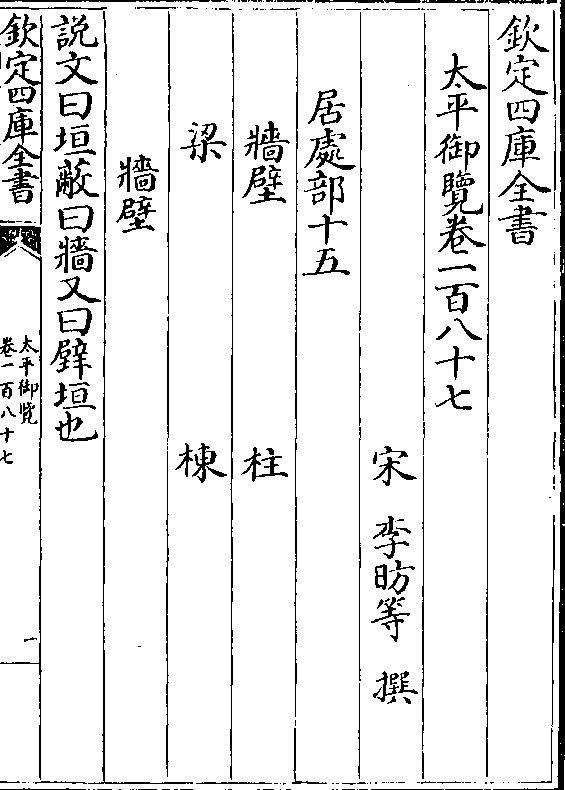 欽定四庫全書
太平御覽卷一百八十七
宋 李昉等 撰
居處部十五
牆壁 柱
梁 棟
牆壁
説文曰垣蔽曰牆又曰壁垣也
欽定四庫全書
太平御覽
卷一百八十七
一